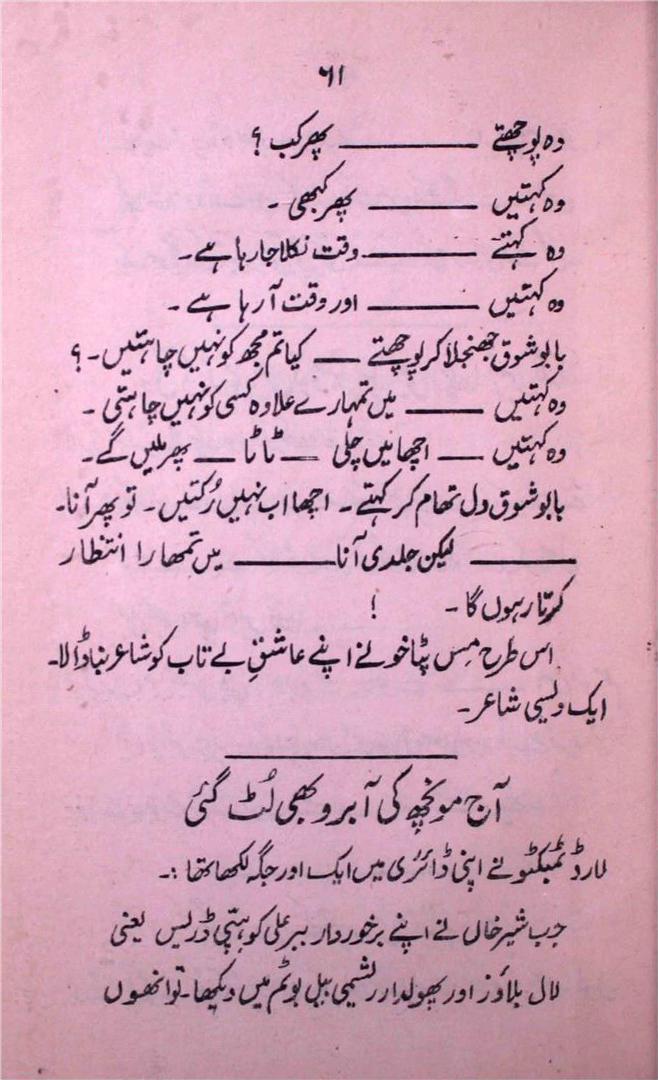 ۶۱
وہ پوچھتے ——— پھر کب ؟
وہ کہتیں ——— پھر کبھی ۔
وہ کہتے ——— وقت نکلا جا رہا ہے۔
وہ کہتیں ——— اور وقت آ رہا ہے ۔
بابو شوق جھنجلا کر پوچھتے — کیا تم مجھ کو نہیں چاہتیں۔ ؟
وہ کہتیں —— میں تمہارے علاوہ کسی کو نہیں چاہتی ۔
وہ کہتیں — اچھا میں چلی — ٹا ٹا — پھر ملیں گے۔
بابو شوق دل تھام کر کہتے ۔ اچھا اب نہیں رُکتیں۔ تو پھر آنا۔
——— لیکن جلدی آنا ——— میں تمھارا انتظار
کرتا رہوں گا ۔ !
اس طرح مِس پٹاخو نے اپنے عاشقِ بے تاب کو شاعر بنا ڈالا۔
ایک ویسی شاعر۔
آج مونچھ کی آبرو بھی لُٹ گئی
لارڈ ٹمبکٹو نے اپنی ڈائری میں ایک اور جگہ لکھا تھا :۔
جب شیر خاں نے اپنے برخوردار ببر علی کو ہپّی ڈریس یعنی
لال بلاؤز اور پھولدار ریشمی بیل بوٹم میں دیکھا۔ تو انھوں